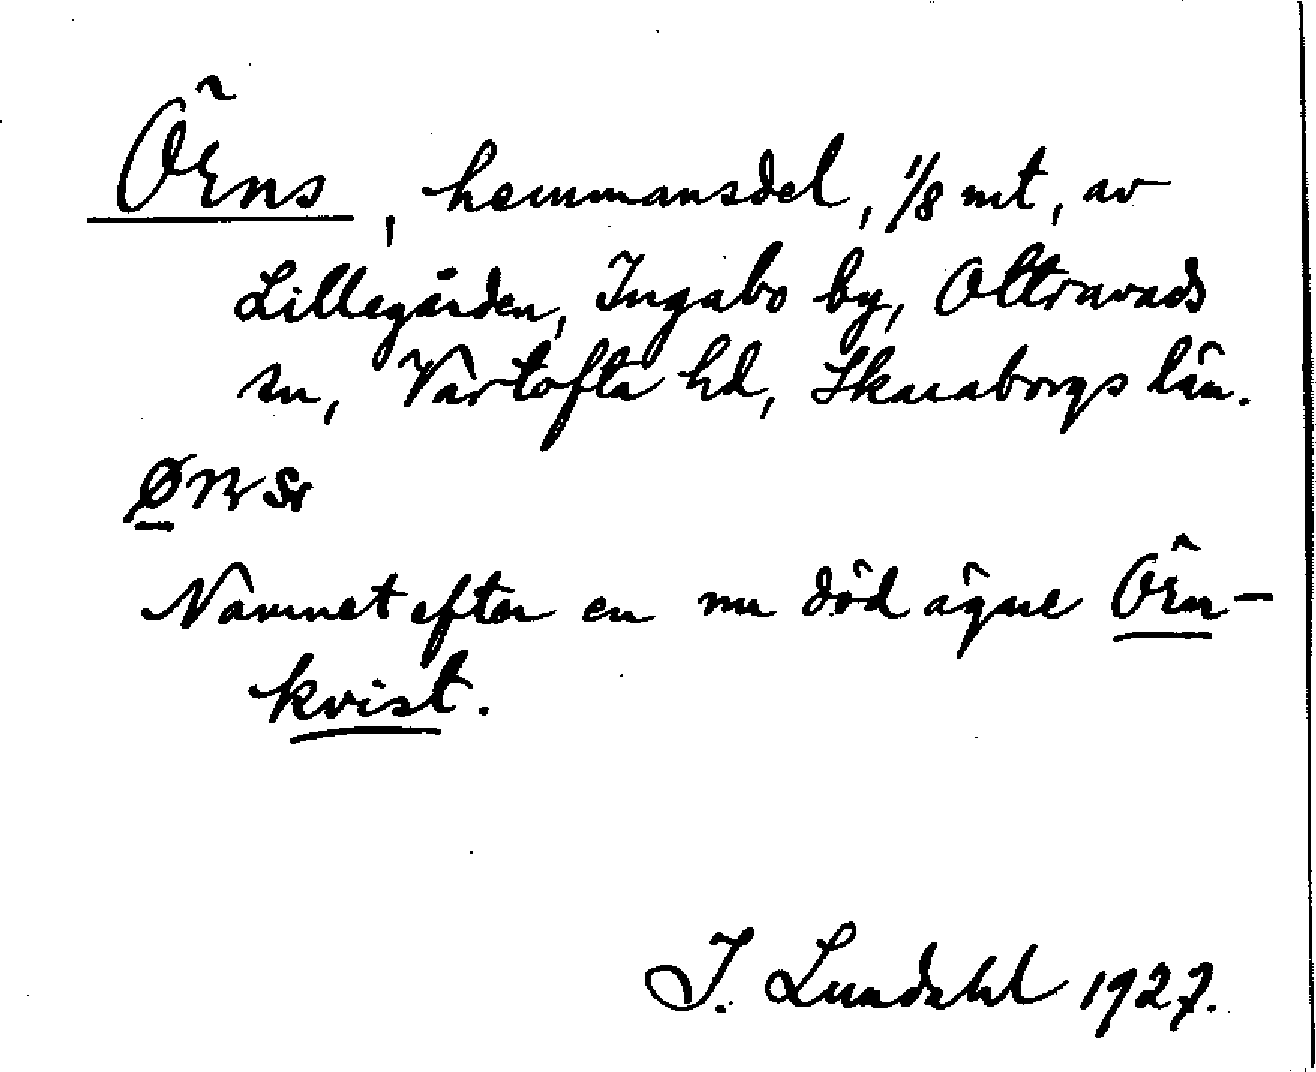 Örns, hemmansdel, 1/8 mt, av
Lillegården, Ingabo by, Öttravads
sn, Vartofta hd, Skaraborgs län.
Namnet efter en nu död ägare Örn-
kvist.
I. Lundahl 1927.